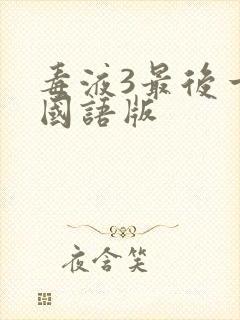 毒液3最後一
國語版
夜含笑